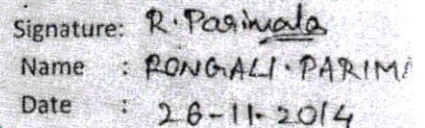 Signature: R. Parimala
Name : RONGALI. PARIM
Date : 26-11-2014